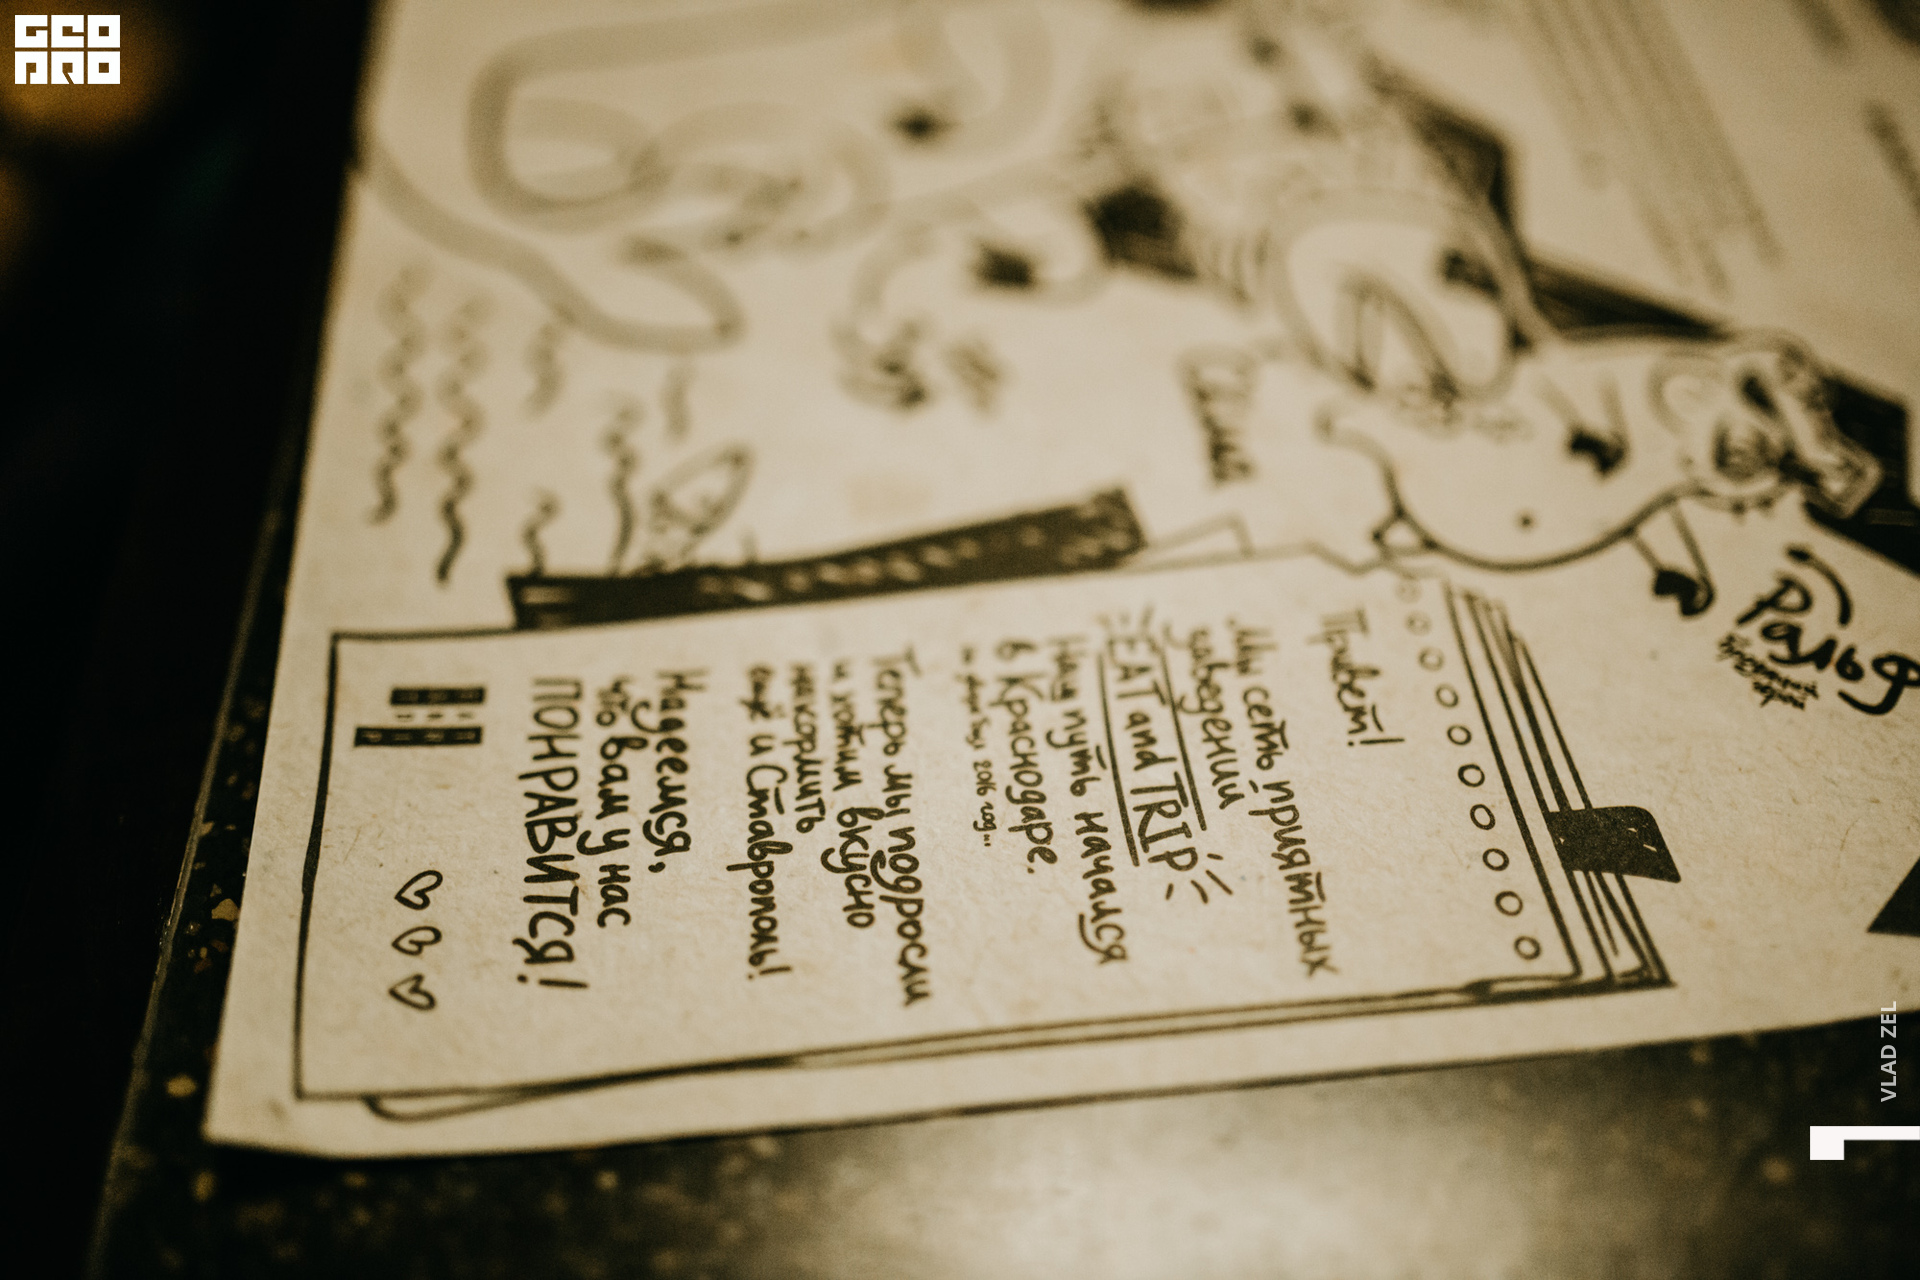 GEO
PRO
Привет!
Мы сеть приятных
заведений
EAT and TRIP
Наш путь начался
в Краснодаре.
2016 год..
Теперь мы подросли
и хотим вкусно
накормить
ещё и Ставрополь!
Надеемся,
что вам у нас
ПОНРАВИТСЯ!
Ральф
VLAD ZEL